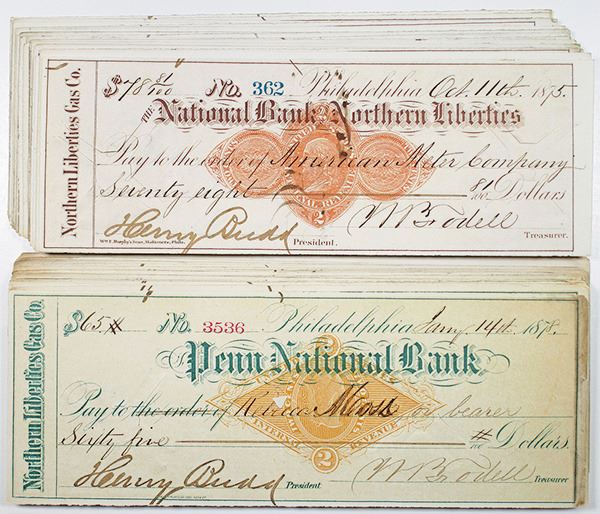 Northern Liberties Gas Co.
$78 81/100 No. 362 Philadelphia Oct. 11th 1875.
THE National Bank OF THE Northern Liberties
Pay to the order of American Meter Company
Seventy eight 81/100 Dollars
Henry Budd President. Treasurer.
Wm F. Murphy's Sons, Stationers, Phila.
Northern Liberties Gas Co.
$65 No. 3536 Philadelphia Jany 14th 1878.
Penn National Bank
Pay to the order of Rebecca Moss or bearer
Sixty five Dollars
Henry Budd President Treasurer